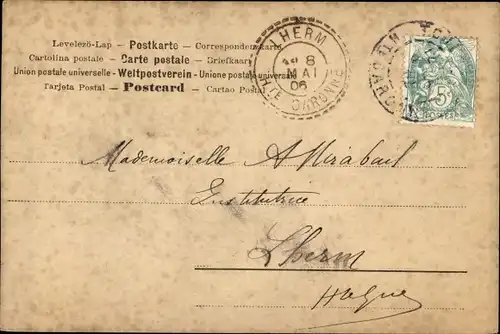 Levelező-Lap - Postkarte - Correspondenzkarte
Cartolina postale - Carte postale - Briefkaart
Union postale universelle - Weltpostverein - Unione postale universale
Tarjeta Postal - Postcard - Cartao Postal
LHERM
8
MAI
06
HTE GARONNE
5
Mademoiselle A Mirabail
Institutrice
Lherm